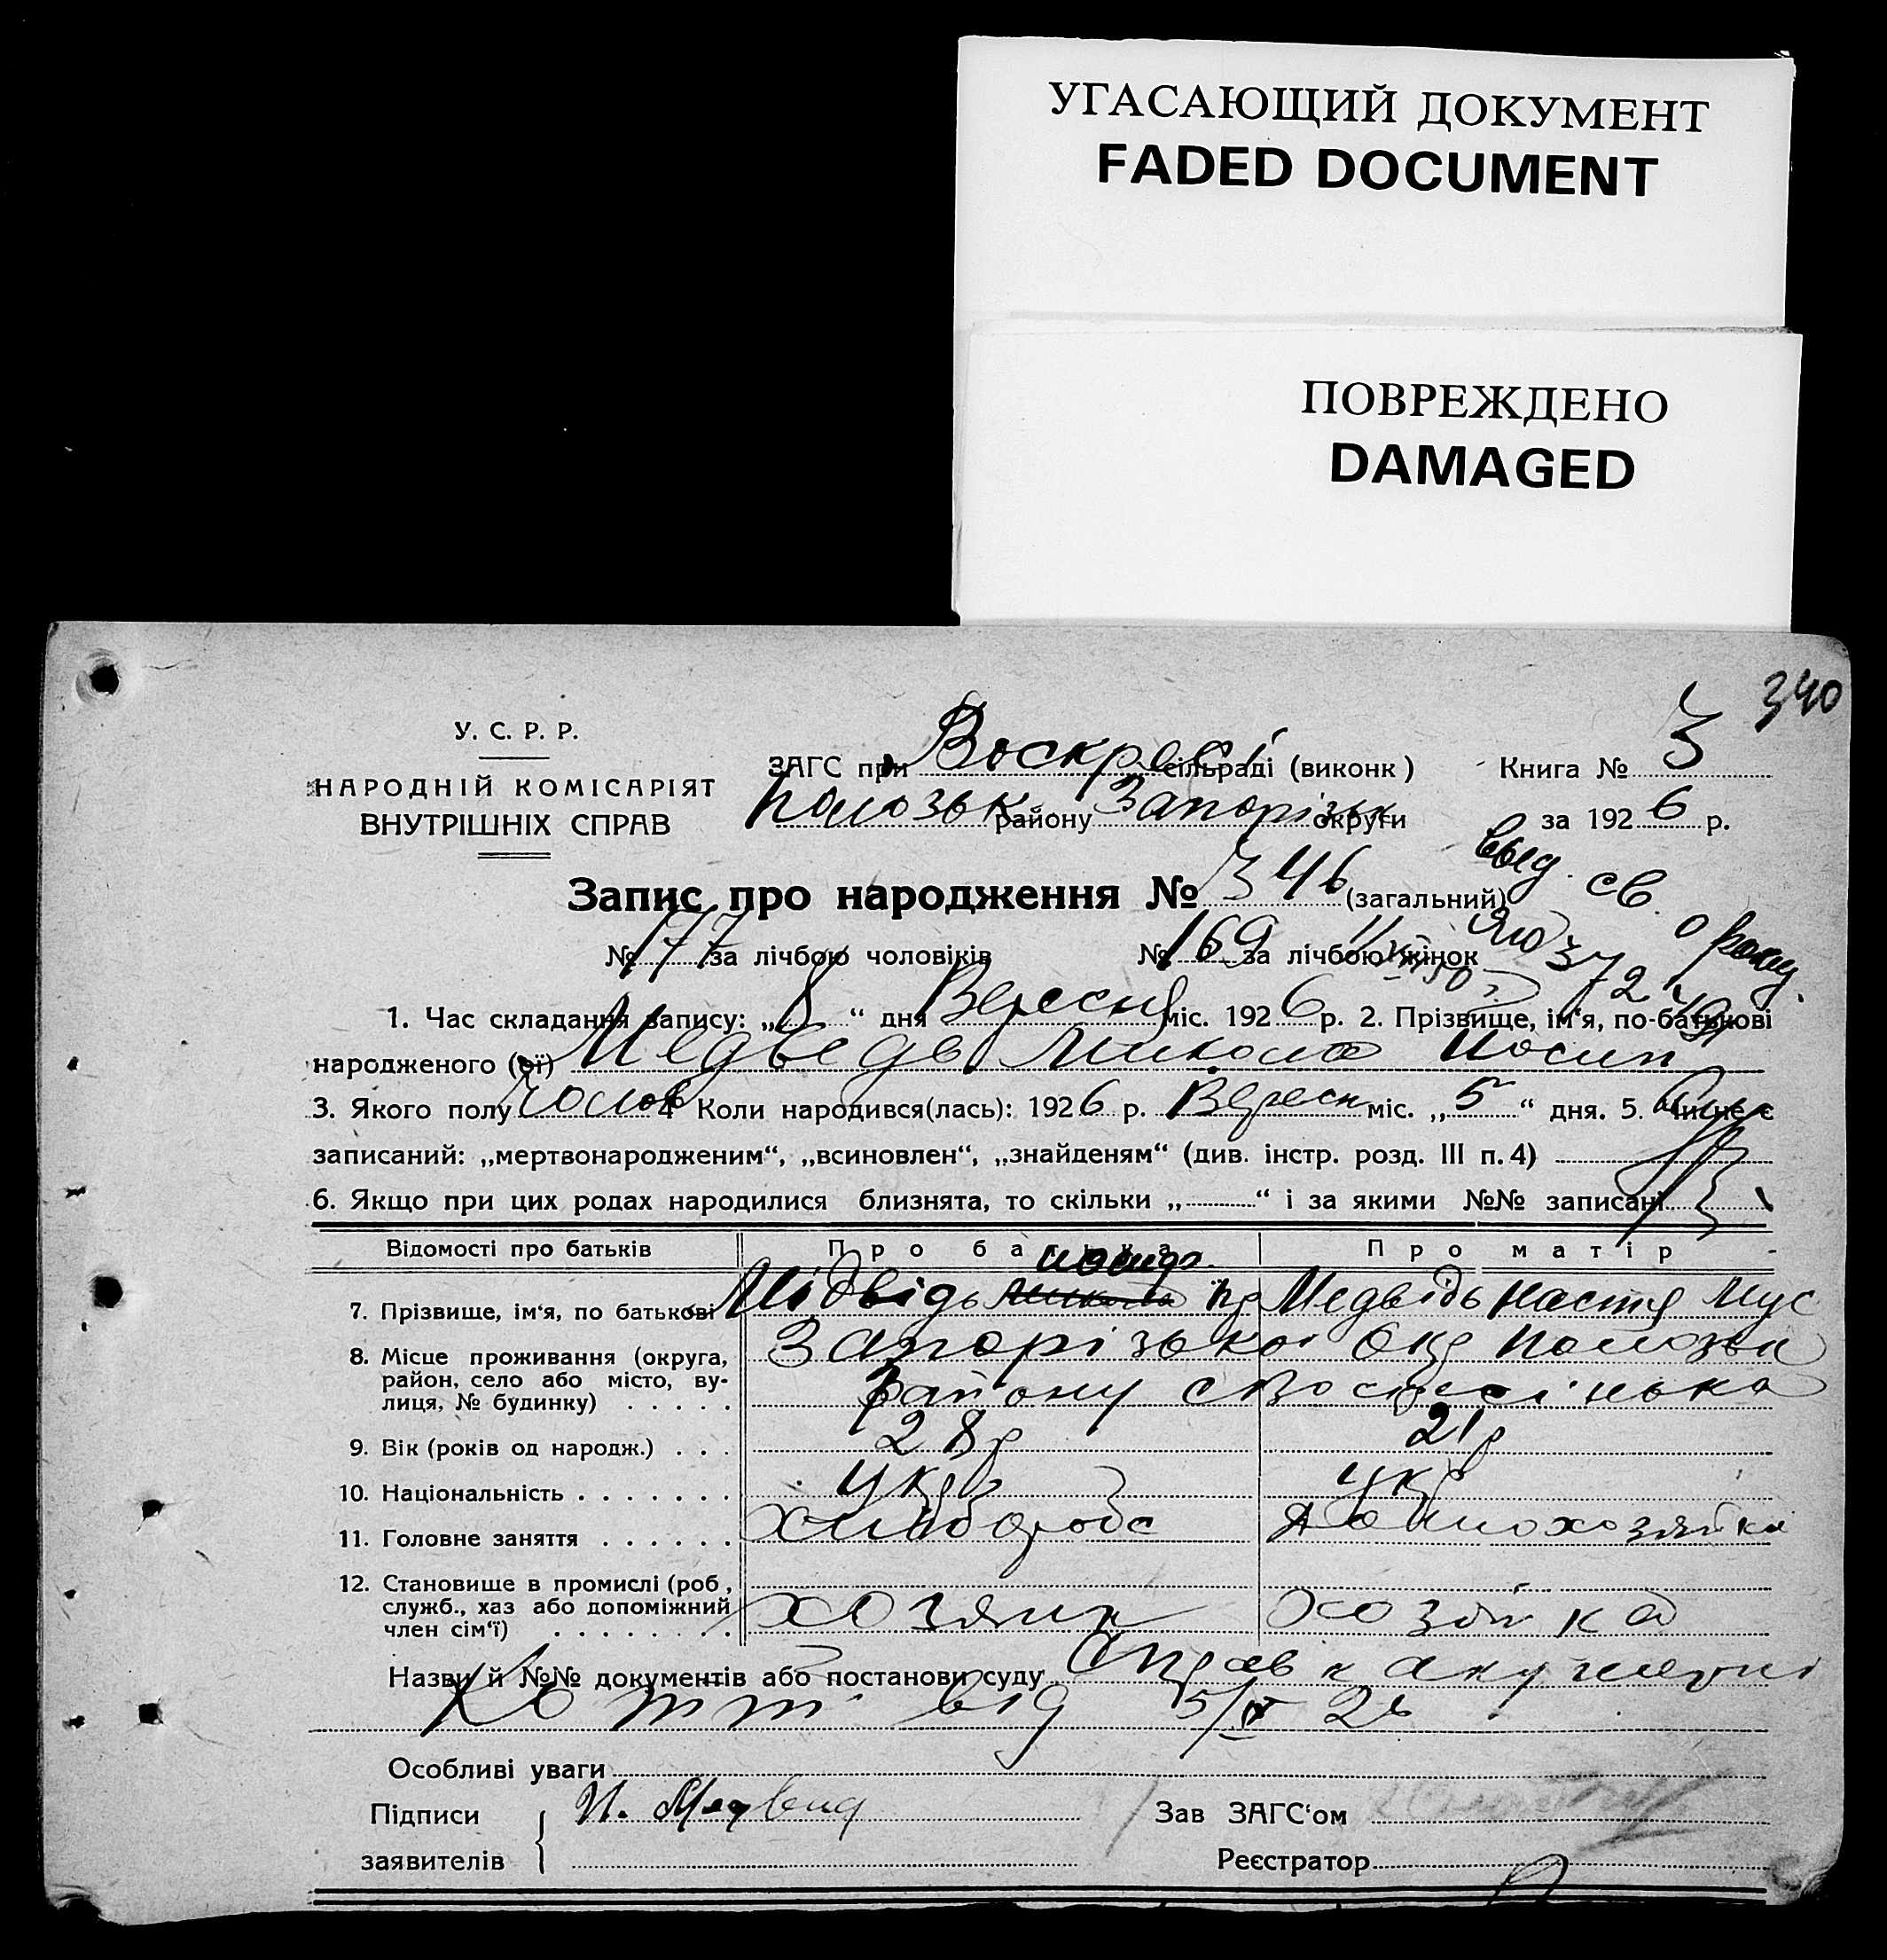 УГАСАЮЩИЙ ДОКУМЕНТ
FADED DOCUMENT
ПОВРЕЖДЕНО
DAMAGED
340
У. С. Р. Р.
НАРОДНІЙ КОМІСАРІЯТ
ВНУТРІШНІХ СПРАВ
ЗАГС при Воскресі сільраді (виконк) Книга № 3
Пологзьк району Запорізьк округи за 1926 р.
Запис про народження № 346 (загальний)
выд. св. о
№ 177 за лічбою чоловіків № 169 за лічбою жінок
ЯЮ 372
1. Час складання запису: „8“ дня Вересня міс. 1926 р. 2. Прізвище, ім‘я, по-батькові
народженого (ої) Медведь Микола Иосип
3. Якого полу чолов 4. Коли народився(лась): 1926 р. Вересн міс. „5“ дня. 5. Чи не є
записаний: „мертвонародженим“, „всиновлен“, „знайденям“ (див. інстр. розд. III п. 4)
6. Якщо при цих родах народилися близнята, то скільки „ “ і за якими №№ записані
Відомості про батьків Про батька Про матір
7. Прізвище, ім‘я, по батькові Мідвідь Микола Медвідь Настя Мус
8. Місце проживання (округа, Запорізької окр Пологзьк
район, село або місто, ву- району с Воскресінька
лиця, № будинку)
9. Вік (років од народж.) 28 р 21 р
10. Національність укр укр
11. Головне заняття хліборобс домохозяйка
12. Становище в промислі (роб,
служб., хаз або допоміжний хозяин хозяйка
член сім‘ї)
Назви й №№ документів або постанови суду Справк акушерні
від 5/IX 26
Особливі уваги
Підписи И. Медвид Зав ЗАГС‘ом
заявителів Реєстратор